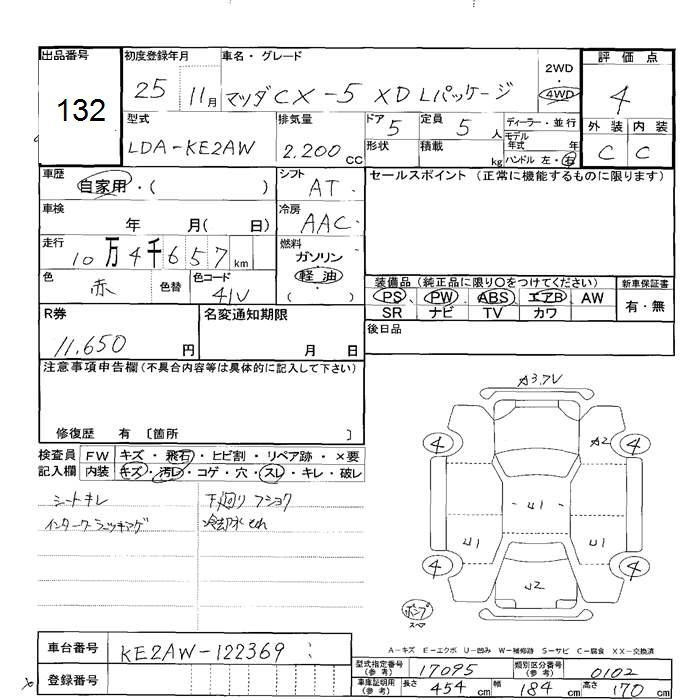 出品番号 初度登録年月 車名・グレード 2WD・4WD 評価点
132 25 11月 マツダCX-5 XD Lパッケージ 4
型式 排気量 ドア 定員 ディーラー・並行 外装 内装
LDA-KE2AW 2,200cc 5 5人 モデル年式 年 C C
形状 積載 kg ハンドル 左・右
車歴 シフト セールスポイント (正常に機能するものに限ります)
自家用・( ) AT
車検 年 月( 日) 冷房 AAC
走行 燃料
10万4千657km ガソリン
色 赤 色替 色コード 41V 軽油
( )
装備品 (純正品に限り○をつけてください) 新車保証書
PS PW ABS エアB AW 有・無
SR ナビ TV カワ
R券 名変通知期限 後日品
11,650円 月 日
注意事項申告欄(不具合内容等は具体的に記入して下さい)
修復歴 有 〔箇所 〕
検査員 FW キズ・飛石・ヒビ割・リペア跡・×要
記入欄 内装 キズ・汚レ・コゲ・穴・スレ・キレ・破レ
シートキレ 下廻りフショク
冷却水モレ
A3.7V
4 A2 4
U1
U1 U1
4 4
U2
ポンプ
スペア
A-キズ E-エクボ U-凹み W-補修跡 S-サビ C-腐食 XX-交換済
車台番号 KE2AW-122369
登録番号
型式指定番号(参考) 17095 類別区分番号(参考) 0102
車庫証明用(参考) 長さ 454cm 幅 184cm 高さ 170cm